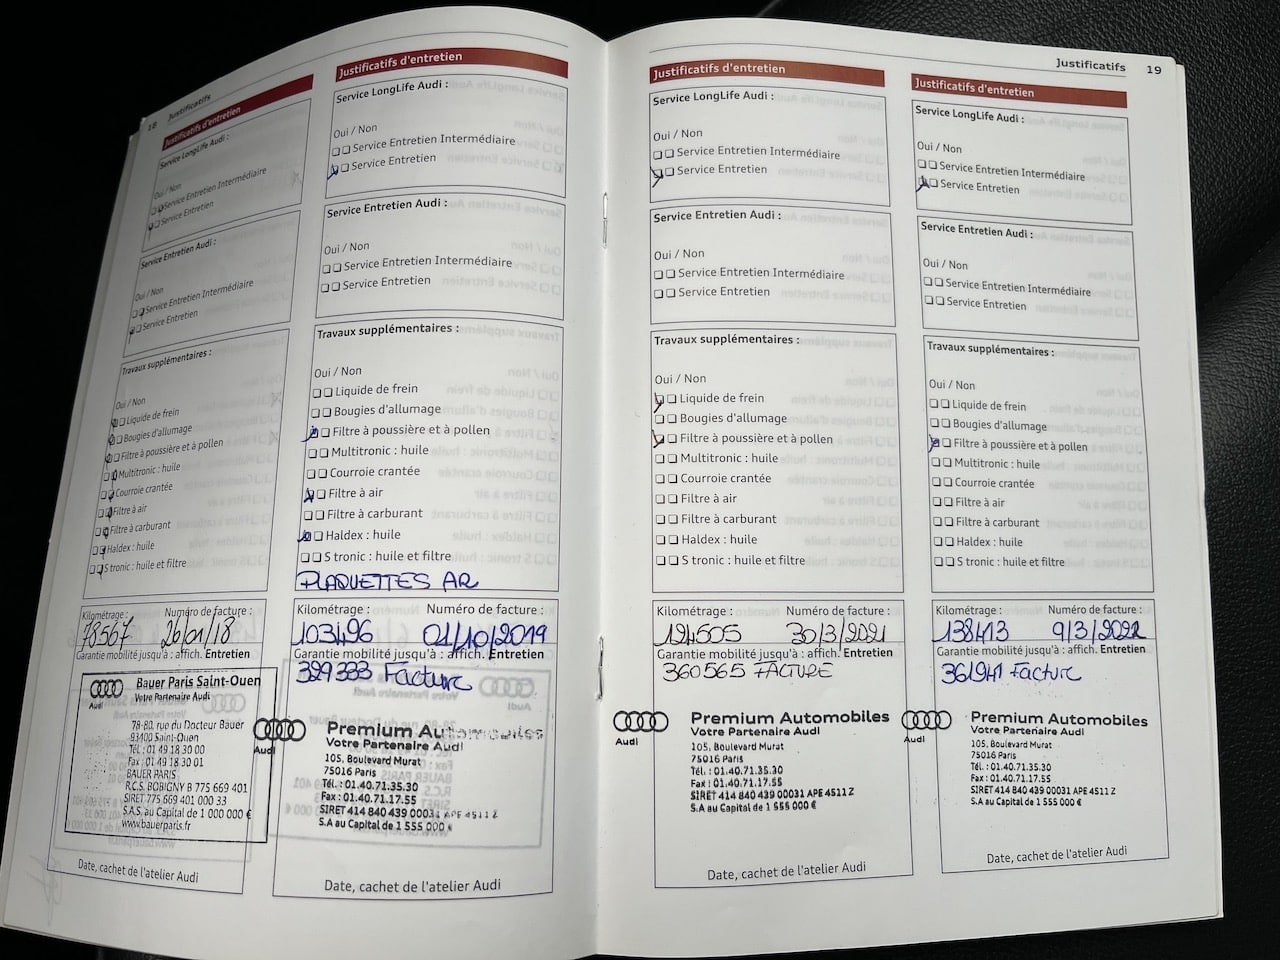 18 Justificatifs
Justificatifs d'entretien
Service LongLife Audi :
Oui / Non
Service Entretien Intermédiaire
Service Entretien
Service Entretien Audi :
Oui / Non
Service Entretien Intermédiaire
Service Entretien
Travaux supplémentaires :
Oui / Non
Liquide de frein
Bougies d'allumage
Filtre à poussière et à pollen
Multitronic : huile
Courroie crantée
Filtre à air
Filtre à carburant
Haldex : huile
S tronic : huile et filtre
Kilométrage : Numéro de facture :
78567 26/01/18
Garantie mobilité jusqu'à : affich. Entretien
Bauer Paris Saint-Ouen
Votre Partenaire Audi
Audi
78-80, rue du Docteur Bauer
93400 Saint-Ouen
Tél. : 01 49 18 30 00
Fax : 01 49 18 30 01
BAUER PARIS
R.C.S. BOBIGNY B 775 669 401
SIRET 775 669 401 000 33
S.A.S. au Capital de 1 000 000 €
www.bauerparis.fr
Date, cachet de l'atelier Audi
Justificatifs d'entretien
Service LongLife Audi :
Oui / Non
Service Entretien Intermédiaire
Service Entretien
Service Entretien Audi :
Oui / Non
Service Entretien Intermédiaire
Service Entretien
Travaux supplémentaires :
Oui / Non
Liquide de frein
Bougies d'allumage
Filtre à poussière et à pollen
Multitronic : huile
Courroie crantée
Filtre à air
Filtre à carburant
Haldex : huile
S tronic : huile et filtre
PLAQUETTES AR
Kilométrage : Numéro de facture :
103496 01/10/2019
Garantie mobilité jusqu'à : affich. Entretien
329333 Facture
Audi
Premium Automobiles
Votre Partenaire Audi
105, Boulevard Murat
75016 Paris
Tél. : 01.40.71.35.30
Fax : 01.40.71.17.55
SIRET 414 840 439 00031 APE 4511 Z
S.A au Capital de 1 555 000 €
Date, cachet de l'atelier Audi
Justificatifs 19
Justificatifs d'entretien
Service LongLife Audi :
Oui / Non
Service Entretien Intermédiaire
Service Entretien
Service Entretien Audi :
Oui / Non
Service Entretien Intermédiaire
Service Entretien
Travaux supplémentaires :
Oui / Non
Liquide de frein
Bougies d'allumage
Filtre à poussière et à pollen
Multitronic : huile
Courroie crantée
Filtre à air
Filtre à carburant
Haldex : huile
S tronic : huile et filtre
Kilométrage : Numéro de facture :
124505 30/3/2021
Garantie mobilité jusqu'à : affich. Entretien
360565 FACTURE
Audi
Premium Automobiles
Votre Partenaire Audi
105, Boulevard Murat
75016 Paris
Tél. : 01.40.71.35.30
Fax : 01.40.71.17.55
SIRET 414 840 439 00031 APE 4511 Z
S.A au Capital de 1 555 000 €
Date, cachet de l'atelier Audi
Justificatifs d'entretien
Service LongLife Audi :
Oui / Non
Service Entretien Intermédiaire
Service Entretien
Service Entretien Audi :
Oui / Non
Service Entretien Intermédiaire
Service Entretien
Travaux supplémentaires :
Oui / Non
Liquide de frein
Bougies d'allumage
Filtre à poussière et à pollen
Multitronic : huile
Courroie crantée
Filtre à air
Filtre à carburant
Haldex : huile
S tronic : huile et filtre
Kilométrage : Numéro de facture :
138413 9/3/2022
Garantie mobilité jusqu'à : affich. Entretien
361941 Facture
Audi
Premium Automobiles
Votre Partenaire Audi
105, Boulevard Murat
75016 Paris
Tél. : 01.40.71.35.30
Fax : 01.40.71.17.55
SIRET 414 840 439 00031 APE 4511 Z
S.A au Capital de 1 555 000 €
Date, cachet de l'atelier Audi